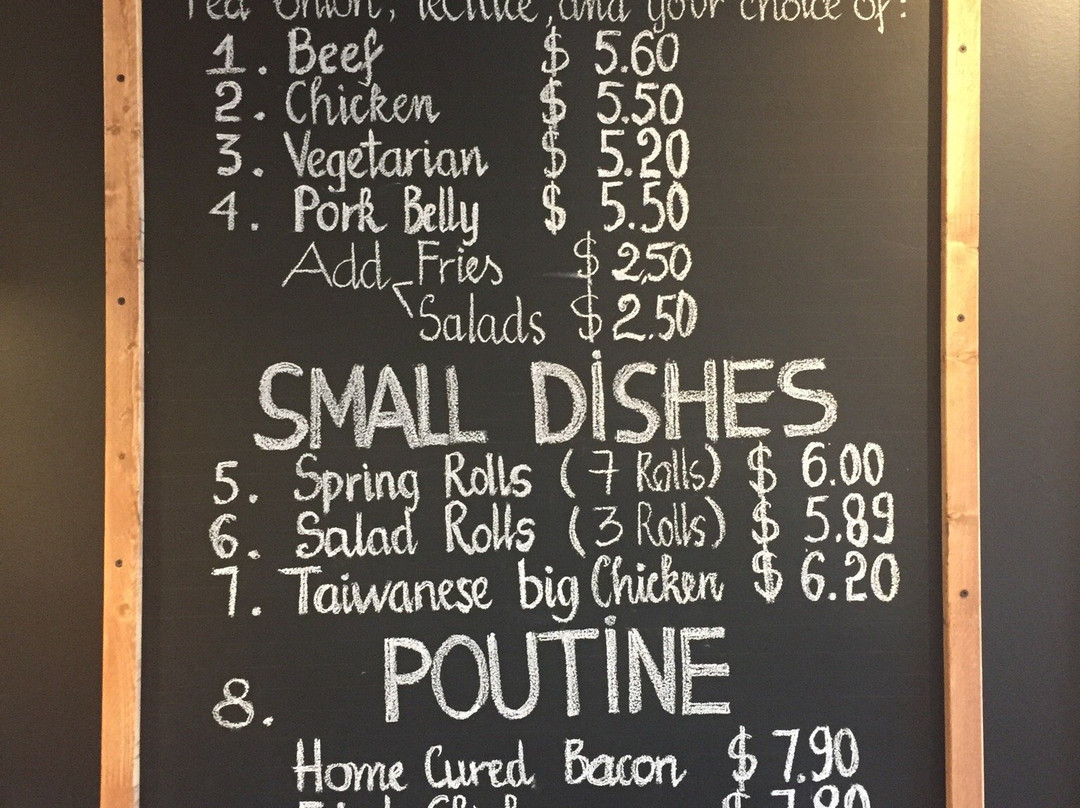 red onion, lettuce, and your choice of:
1. Beef $ 5.60
2. Chicken $ 5.50
3. Vegetarian $ 5.20
4. Pork Belly $ 5.50
Add Fries $ 2,50
Salads $ 2.50
SMALL DiSHES
5. Spring Rolls (7 Rolls) $ 6.00
6. Salad Rolls (3 Rolls) $ 5.89
7. Taiwanese big Chicken $ 6.20
8. POUTiNE
Home Cured Bacon $ 7.90
$ 7.80